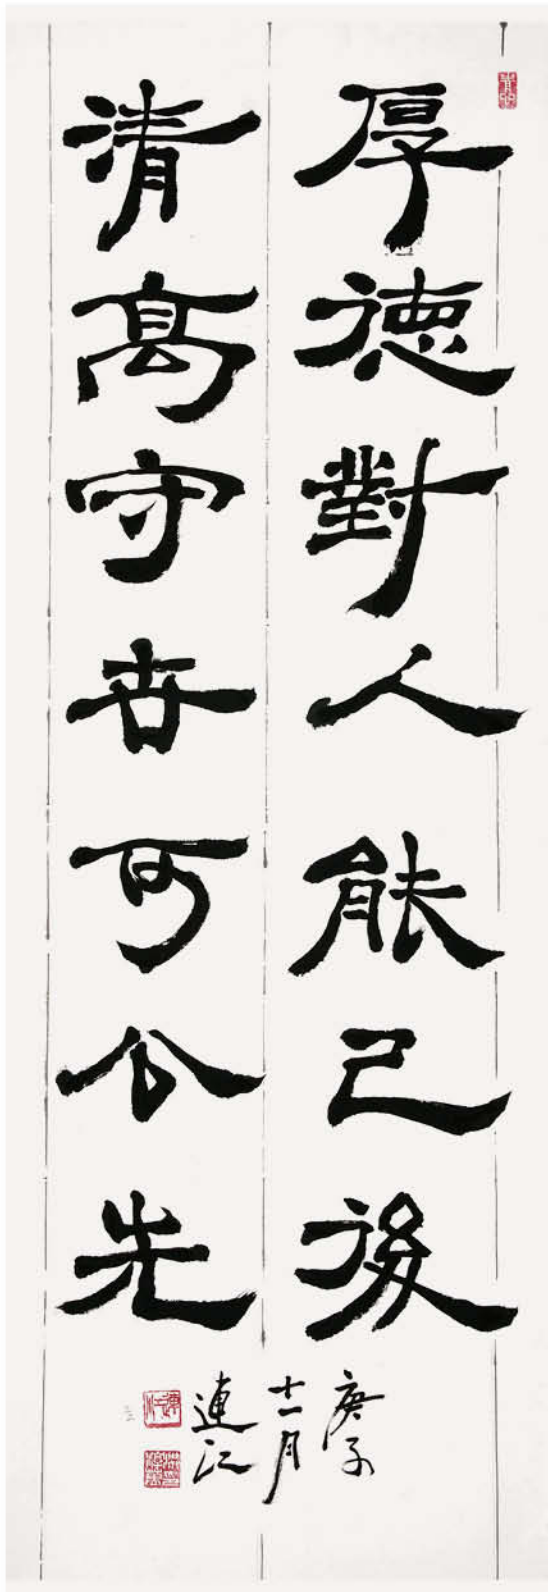 厚德對人能己後
清高守世可公先
庚子
十一月
連江